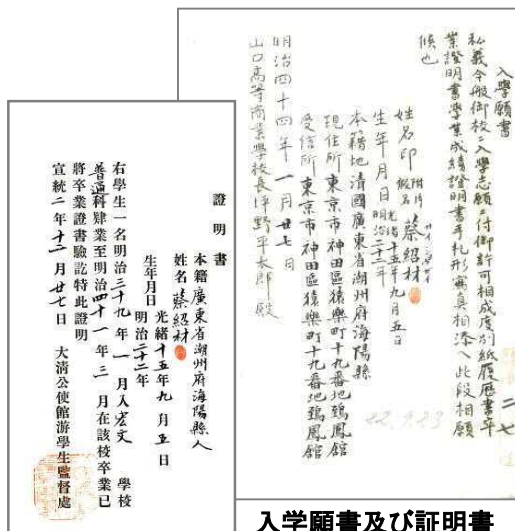 入學願書
私義今般御校ニ入學志願ニ付御許可相成度別紙履歴書卒
業證明書學業成績證明書手札形寫真相添へ此段相願
候也
姓名印 附片 蔡紹材
假名
生年月日 光緒十五年九月五日
明治二十二年
本籍地 清國廣東省潮州府海陽縣
現住所 東京市神田區猿樂町十九番地鶏鳳館
受信所 東京市神田區猿樂町十九番地鶏鳳館
明治四十四年一月廿七日
山口高等商業學校長坪野平太郎殿
二七
22.9.23
證明書
本籍 廣東省潮州府海陽縣人
姓名 蔡紹材
生年月日 光緒十五年九月五日
明治二十二年
右學生一名明治三十九年一月入宏文學校
普通科肄業至明治四十一年三月在該校卒業已
將卒業證書驗訖特此證明
宣統二年十二月廿七日 大清公使館游學生監督處
入学願書及び証明書